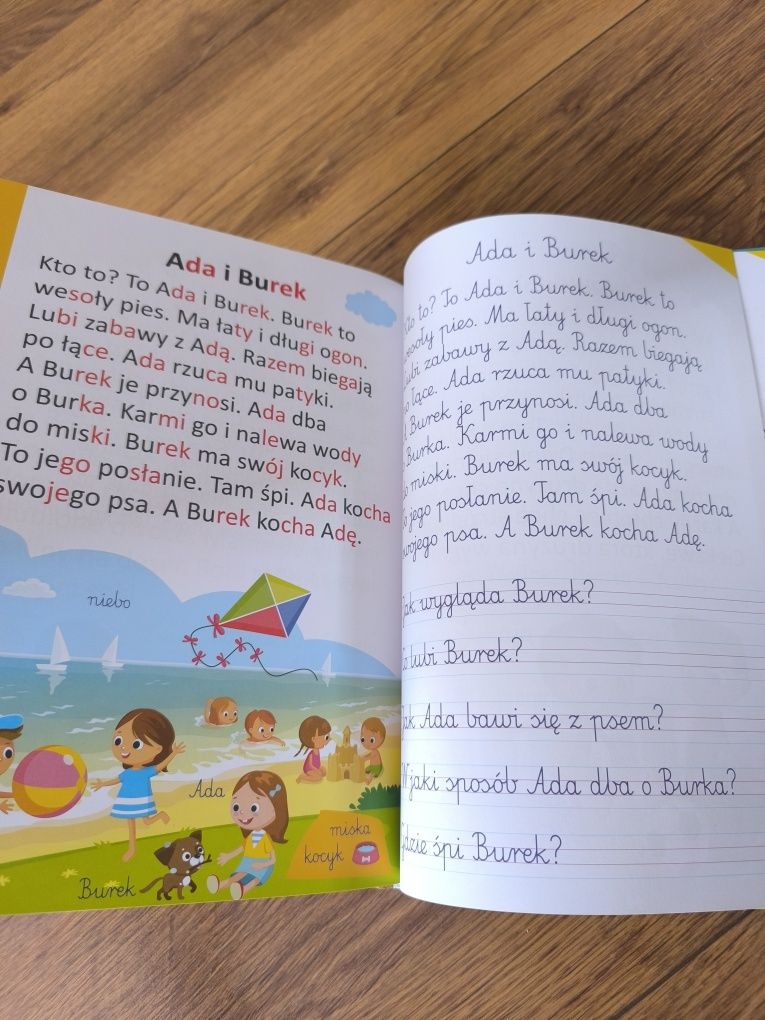 Ada i Burek
Kto to? To Ada i Burek. Burek to
wesoły pies. Ma łaty i długi ogon.
Lubi zabawy z Adą. Razem biegają
po łące. Ada rzuca mu patyki.
A Burek je przynosi. Ada dba
o Burka. Karmi go i nalewa wody
do miski. Burek ma swój kocyk.
To jego posłanie. Tam śpi. Ada kocha
swojego psa. A Burek kocha Adę.
niebo
Ada
miska
kocyk
Burek
Ada i Burek
Kto to? To Ada i Burek. Burek to
wesoły pies. Ma łaty i długi ogon.
Lubi zabawy z Adą. Razem biegają
po łące. Ada rzuca mu patyki.
A Burek je przynosi. Ada dba
o Burka. Karmi go i nalewa wody
do miski. Burek ma swój kocyk.
To jego posłanie. Tam śpi. Ada kocha
swojego psa. A Burek kocha Adę.
Jak wygląda Burek?
Co lubi Burek?
Jak Ada bawi się z psem?
W jaki sposób Ada dba o Burka?
Gdzie śpi Burek?